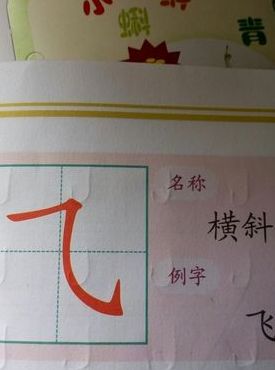 青
⺄
名称
横斜
例字
飞